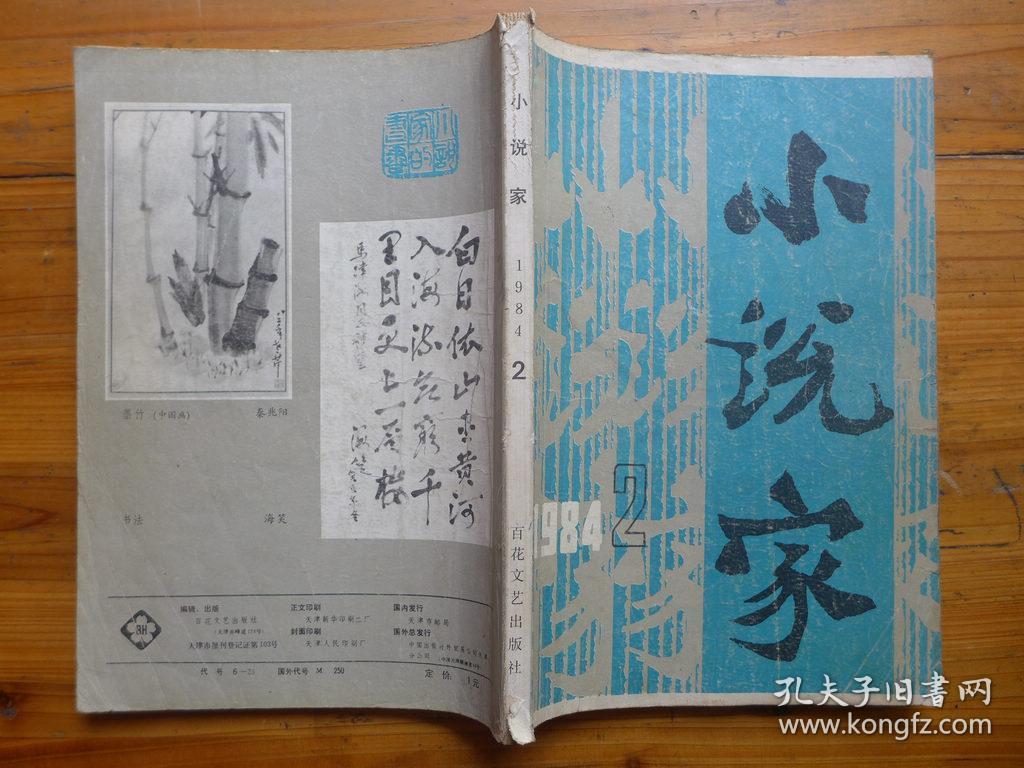 小说家
1984
2
小
说
家
1984
2
百花文艺出版社
小说家的书画
白日依山尽黄河
入海流欲穷千
里目更上一层楼
墨竹（中国画）
秦兆阳
书法
海笑
编辑、出版
百花文艺出版社
天津市报刊登记证第103号
正文印刷
天津新华印刷二厂
封面印刷
天津人民印刷厂
国内发行
天津市邮局
国外总发行
代号 6—25
国外代号 M 250
定价：1元
孔夫子旧书网
www.kongfz.com